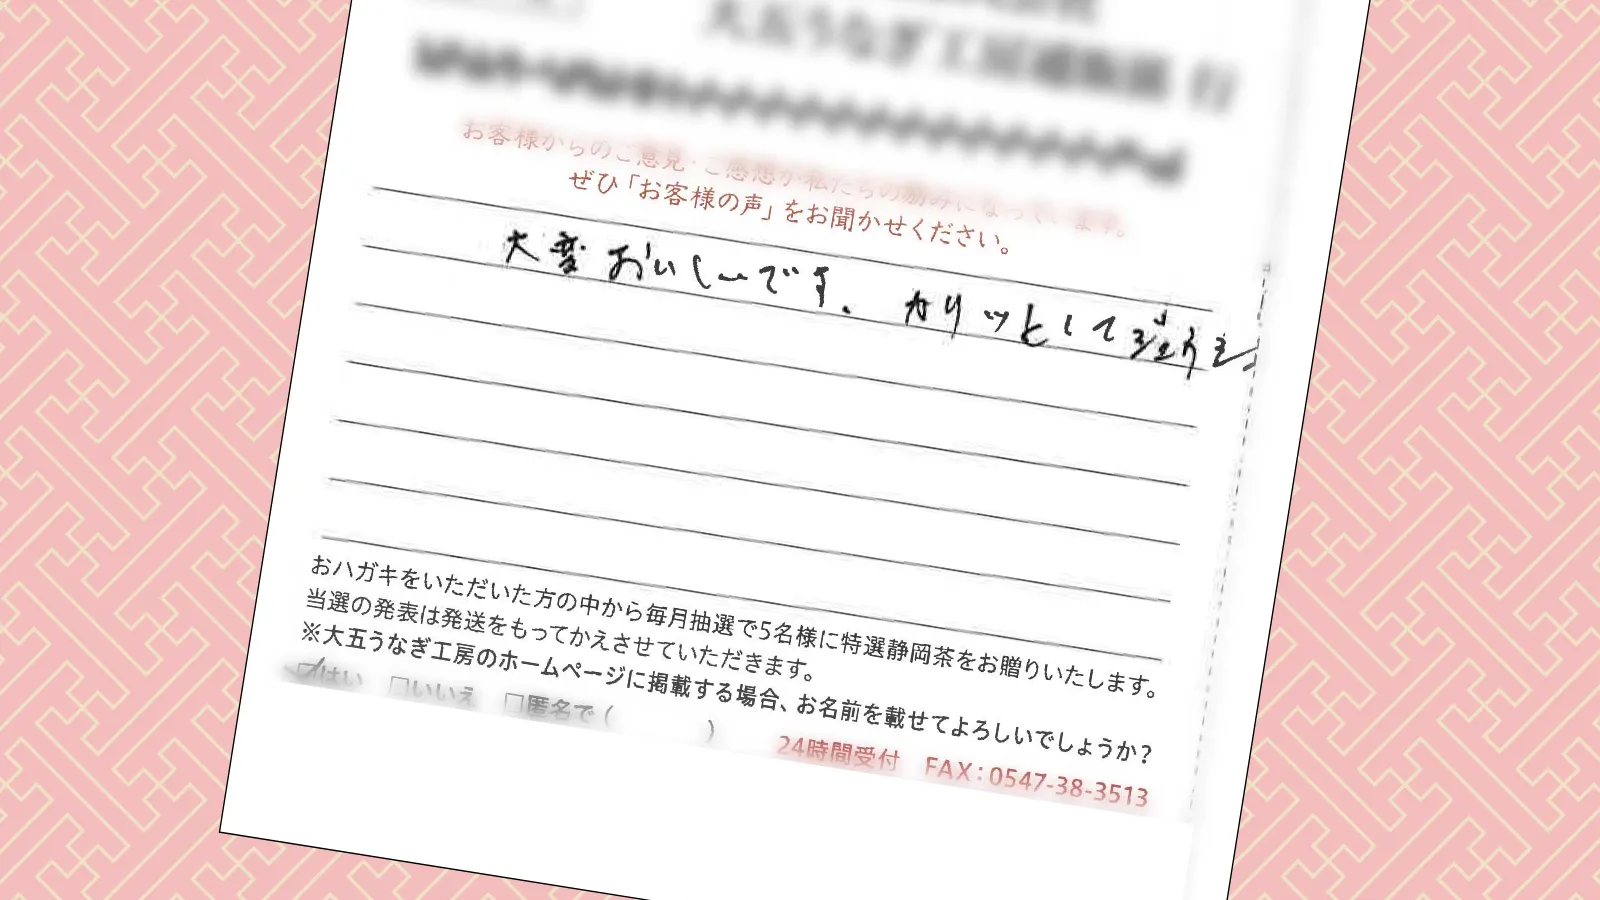 大五うなぎ工房通販係 行
お客様からのご意見・ご感想が私たちの励みになっています。
ぜひ「お客様の声」をお聞かせください。
大変おいしーです。カリッとして
おハガキをいただいた方の中から毎月抽選で5名様に特選静岡茶をお贈りいたします。
当選の発表は発送をもってかえさせていただきます。
※大五うなぎ工房のホームページに掲載する場合、お名前を載せてよろしいでしょうか？
☑はい □いいえ □匿名で（ ）
24時間受付 FAX：0547-38-3513